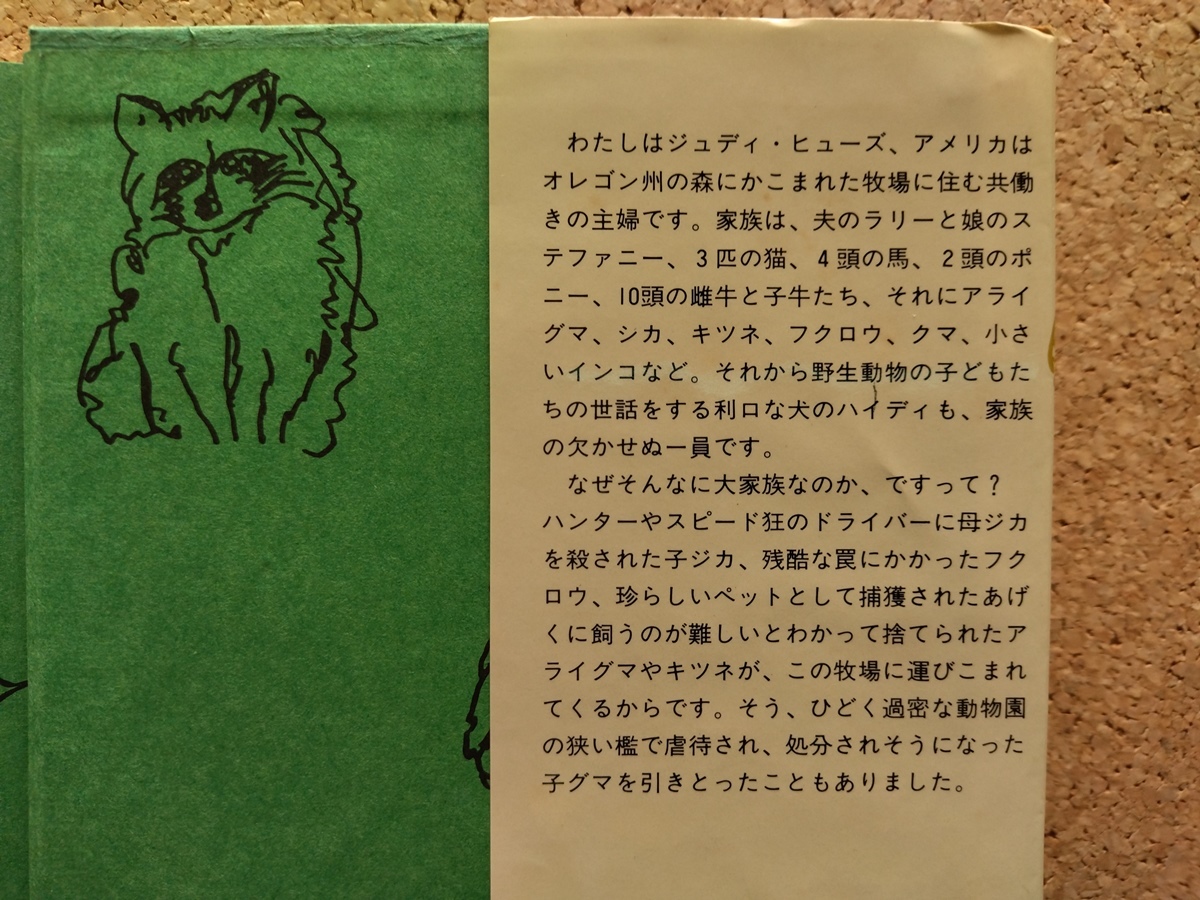 わたしはジュディ・ヒューズ、アメリカは
オレゴン州の森にかこまれた牧場に住む共働
きの主婦です。家族は、夫のラリーと娘のス
テファニー、3匹の猫、4頭の馬、2頭のポ
ニー、10頭の雌牛と子牛たち、それにアライ
グマ、シカ、キツネ、フクロウ、クマ、小さ
いインコなど。それから野生動物の子どもた
ちの世話をする利口な犬のハイディも、家族
の欠かせぬ一員です。
なぜそんなに大家族なのか、ですって?
ハンターやスピード狂のドライバーに母ジカ
を殺された子ジカ、残酷な罠にかかったフク
ロウ、珍らしいペットとして捕獲されたあげ
くに飼うのが難しいとわかって捨てられたア
ライグマやキツネが、この牧場に運びこまれ
てくるからです。そう、ひどく過密な動物園
の狭い檻で虐待され、処分されそうになった
子グマを引きとったこともありました。